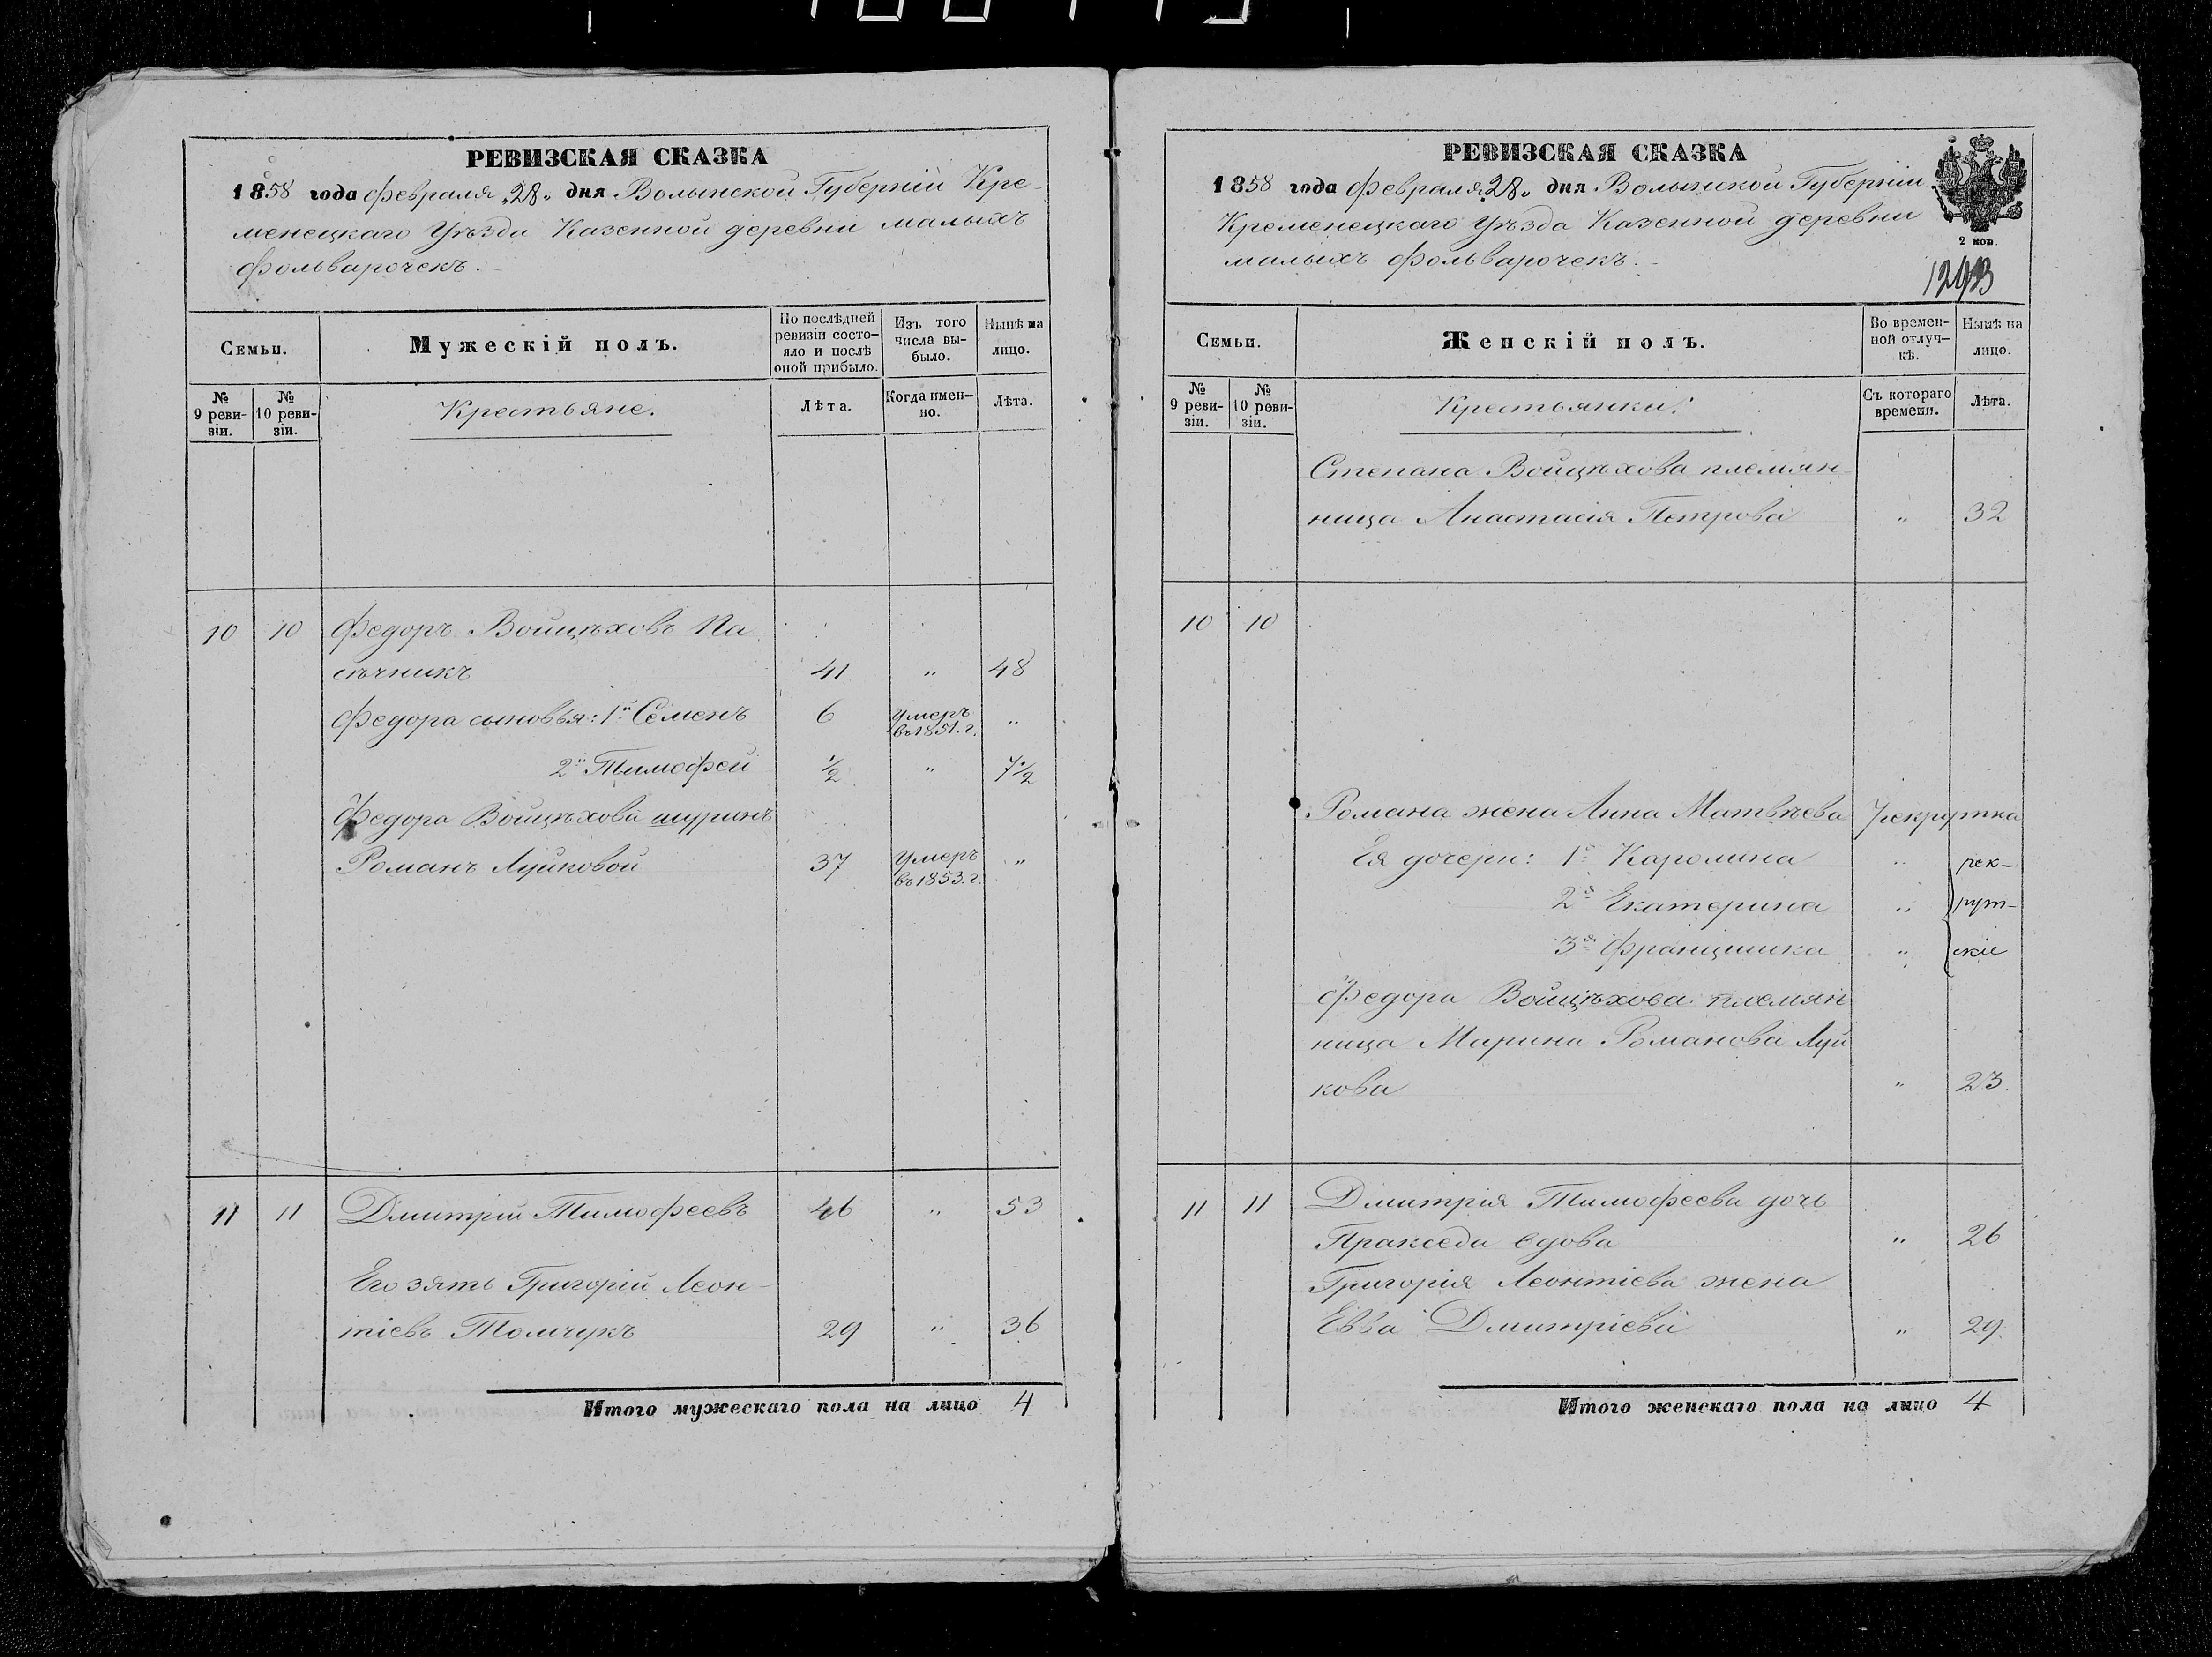 РЕВИЗСКАЯ СКАЗКА
1858 года февраля „28„ дня Волынской Губерніи Кре-
менецкаго Уѣзда Казенной деревни малыхъ
фольварочекъ.
Семьи.
Мужескій полъ.
По послѣдней ревизіи состо-яло и послѣ оной прибыло.
Изъ того числа вы-было.
Нынѣ на лицо.
№ 9 реви-зіи.
№ 10 реви-зіи.
Крестьяне.
Лѣта.
Когда имен-но.
Лѣта.
10 10 Федоръ Войцѣховъ Па
сѣчникъ 41 „ 48
Федора сыновья: 1й Семенъ 6 умеръ въ 1851. г. „
2й Тимофей ½ „ 7½
Федора Войцѣхова шуринъ
Романъ Луйковой 37 умеръ въ 1853. г. „
11 11 Дмитрій Тимофеевъ 46 „ 53
Его зять Григорій Леон-
тіевъ Томчукъ 29 „ 36
Итого мужескаго пола на лицо 4
РЕВИЗСКАЯ СКАЗКА
1858 года февраля „28„ дня Волынской Губерніи
Кременецкаго Уѣзда Казенной деревни
малыхъ фольварочекъ.
2 коп.
Семьи.
Женскій полъ.
Во времен-ной отлуч-кѣ.
Нынѣ на лицо.
№ 9 реви-зіи.
№ 10 реви-зіи.
Крестьянки.
Съ котораго времени.
Лѣта.
Степана Войцѣхова племян-
ница Анастасія Петрова „ 32
10 10
Романа жена Анна Матвѣева рекрутка
Ея дочери: 1я Каролина „ рек-
2я Екатерина „ рут-
3я Францишка „ скіе
Федора Войцѣхова племян
ница Марина Романова Луй
кова „ 23.
11 11 Дмитрія Тимофеева дочь
Пракседа вдова „ 26
Григорія Леонтіева жена
Евва Дмитріева „ 29.
Итого женскаго пола на лицо 4